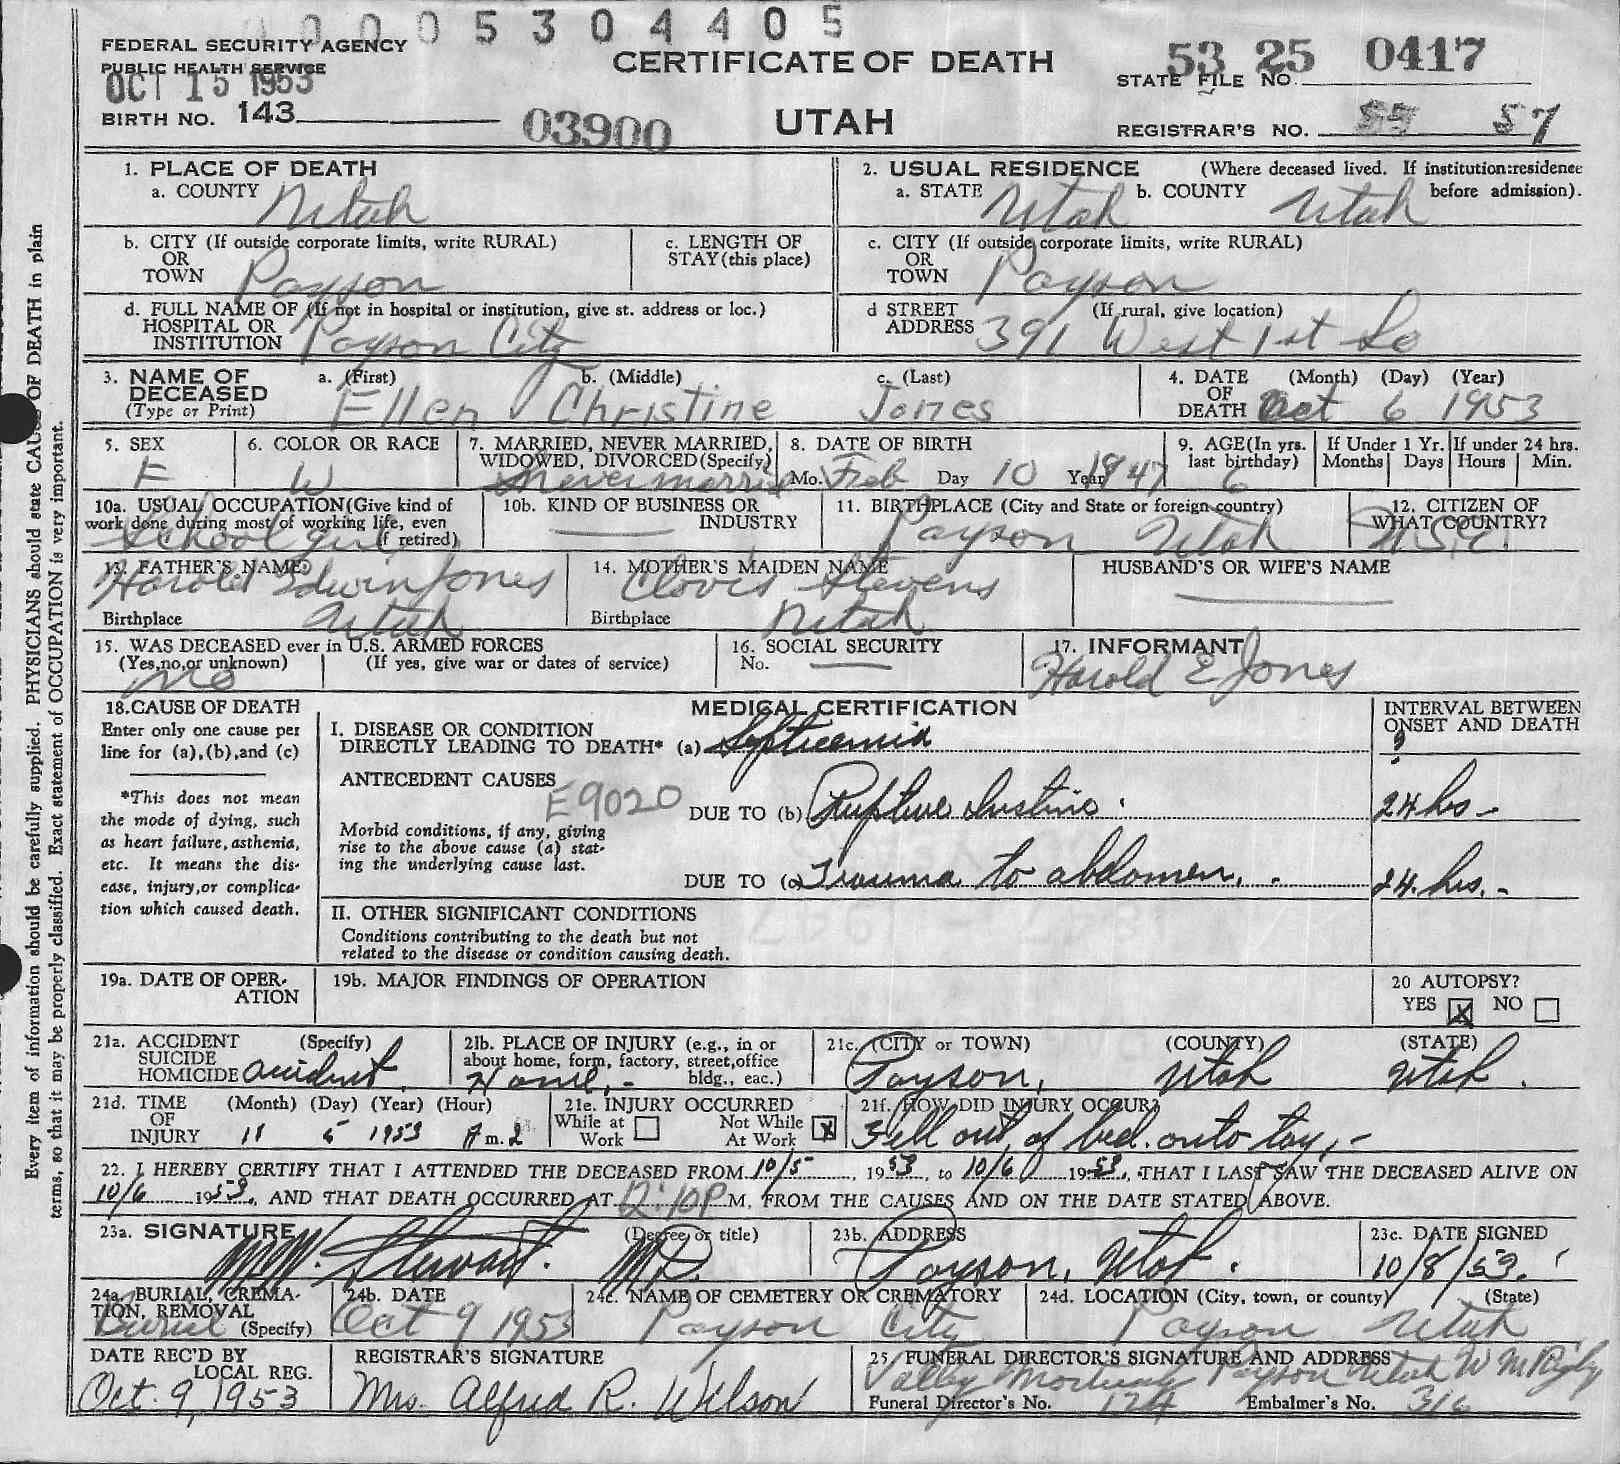 0005304405
FEDERAL SECURITY AGENCY
PUBLIC HEALTH SERVICE
OCT 15 1953
CERTIFICATE OF DEATH
STATE FILE NO. 53 25 0417
BIRTH NO. 143
03900
UTAH
REGISTRAR'S NO. 57
1. PLACE OF DEATH
a. COUNTY Utah
2. USUAL RESIDENCE (Where deceased lived. If institution:residence before admission).
a. STATE Utah b. COUNTY Utah
b. CITY (If outside corporate limits, write RURAL) OR TOWN Payson
c. LENGTH OF STAY (this place)
c. CITY (If outside corporate limits, write RURAL) OR TOWN Payson
d. FULL NAME OF (If not in hospital or institution, give st. address or loc.) HOSPITAL OR INSTITUTION Payson City
d STREET ADDRESS (If rural, give location) 391 West 1st So
3. NAME OF DECEASED (Type or Print)
a. (First) Ellen b. (Middle) Christine c. (Last) Jones
4. DATE OF DEATH (Month) (Day) (Year) Oct 6 1953
5. SEX F
6. COLOR OR RACE W
7. MARRIED, NEVER MARRIED, WIDOWED, DIVORCED (Specify) Never married
8. DATE OF BIRTH Mo. Feb Day 10 Year 1947
9. AGE (In yrs. last birthday) 6
If Under 1 Yr. Months Days
If under 24 hrs. Hours Min.
10a. USUAL OCCUPATION (Give kind of work done during most of working life, even if retired) School girl
10b. KIND OF BUSINESS OR INDUSTRY
11. BIRTHPLACE (City and State or foreign country) Payson Utah
12. CITIZEN OF WHAT COUNTRY? U.S.A.
13. FATHER'S NAME Harold Edwin Jones
Birthplace Utah
14. MOTHER'S MAIDEN NAME Clovis Stevens
Birthplace Utah
HUSBAND'S OR WIFE'S NAME
15. WAS DECEASED ever in U.S. ARMED FORCES
(Yes,no,or unknown) (If yes, give war or dates of service)
no
16. SOCIAL SECURITY No.
17. INFORMANT Harold E Jones
18. CAUSE OF DEATH
Enter only one cause per line for (a),(b),and (c)
*This does not mean the mode of dying, such as heart failure, asthenia, etc. It means the disease, injury,or complication which caused death.
MEDICAL CERTIFICATION
INTERVAL BETWEEN ONSET AND DEATH
I. DISEASE OR CONDITION DIRECTLY LEADING TO DEATH* (a) Septicemia ?
ANTECEDENT CAUSES
E9020
DUE TO (b) Rupture Instine. 24 hs-
Morbid conditions, if any, giving rise to the above cause (a) stating the underlying cause last.
DUE TO (c) Trauma to abdomen. 24. hrs.-
II. OTHER SIGNIFICANT CONDITIONS
Conditions contributing to the death but not related to the disease or condition causing death.
19a. DATE OF OPERATION
19b. MAJOR FINDINGS OF OPERATION
20 AUTOPSY?
YES X NO
21a. ACCIDENT SUICIDE HOMICIDE (Specify) accident
21b. PLACE OF INJURY (e.g., in or about home, form, factory, street,office bldg., eac.) Home.-
21c. (CITY or TOWN) (COUNTY) (STATE)
Payson, Utah Utah.
21d. TIME OF INJURY (Month) (Day) (Year) (Hour)
5 1953 A m. 2
21e. INJURY OCCURRED
While at Work Not While At Work X
21f. HOW DID INJURY OCCUR?
Fell out of bed. onto toy,-
22. I HEREBY CERTIFY THAT I ATTENDED THE DECEASED FROM 10/5 1953, to 10/6 1953, THAT I LAST SAW THE DECEASED ALIVE ON
10/6 1953, AND THAT DEATH OCCURRED AT 12:10P M, FROM THE CAUSES AND ON THE DATE STATED ABOVE.
23a. SIGNATURE (Degree or title)
Stewart. MD.
23b. ADDRESS
Payson, Utah.
23c. DATE SIGNED
10/8/53.
24a. BURIAL, CREMATION, REMOVAL (Specify) Burial
24b. DATE Oct 9 1953
24c. NAME OF CEMETERY OR CREMATORY Payson City
24d. LOCATION (City, town, or county) (State) Payson Utah
DATE REC'D BY LOCAL REG. Oct. 9, 1953
REGISTRAR'S SIGNATURE Mrs. Alfred R. Wilson
25. FUNERAL DIRECTOR'S SIGNATURE AND ADDRESS
Valley Mortuary Payson Utah
Funeral Director's No. 124 Embalmer's No. 316
Every item of information should be carefully supplied. PHYSICIANS should state CAUSE OF DEATH in plain
terms, so that it may be properly classified. Exact statement of OCCUPATION is very important.